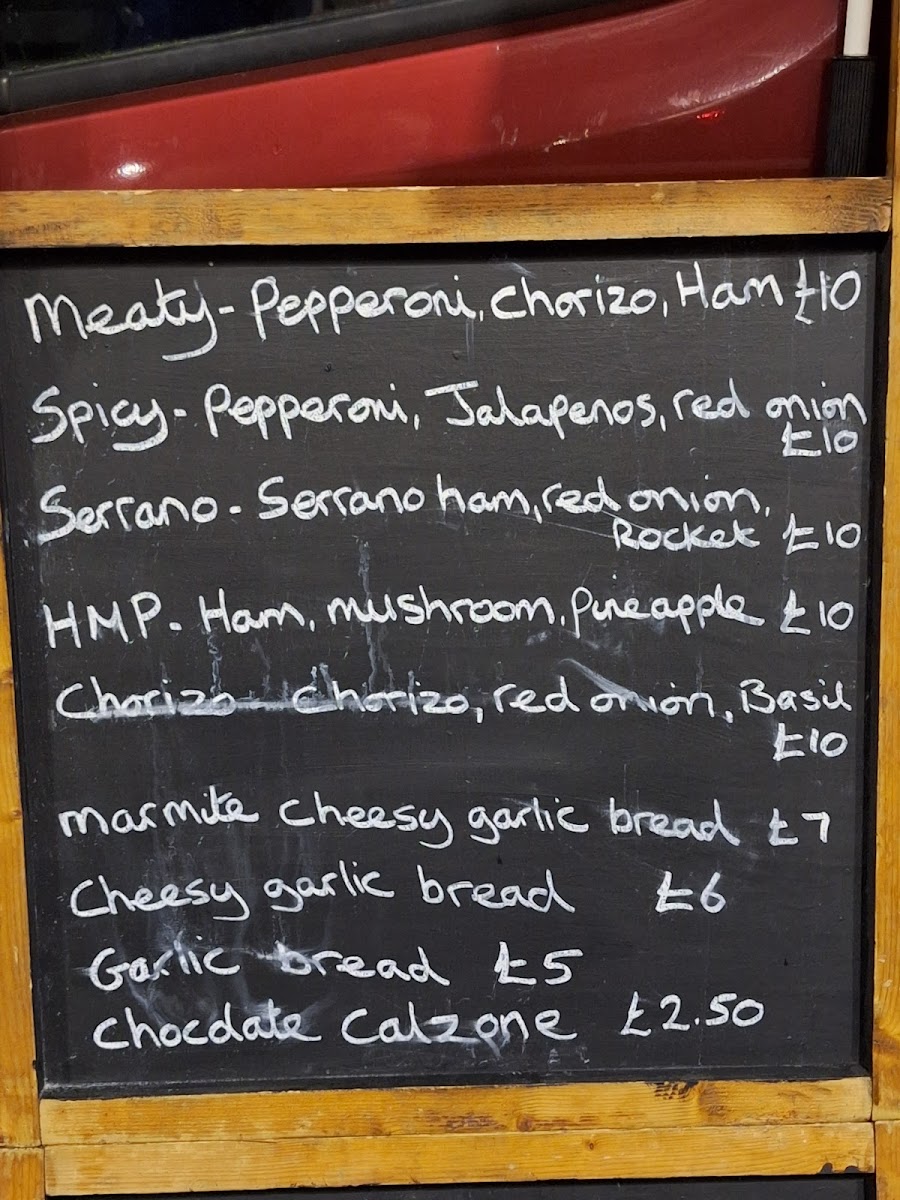 Meaty - Pepperoni, Chorizo, Ham £10
Spicy - Pepperoni, Jalapenos, red onion
£10
Serrano - Serrano ham, red onion,
Rocket £10
HMP - Ham, mushroom, pineapple £10
Chorizo - Chorizo, red onion, Basil
£10
marmite cheesy garlic bread £7
Cheesy garlic bread £6
Garlic bread £5
Chocolate Calzone £2.50